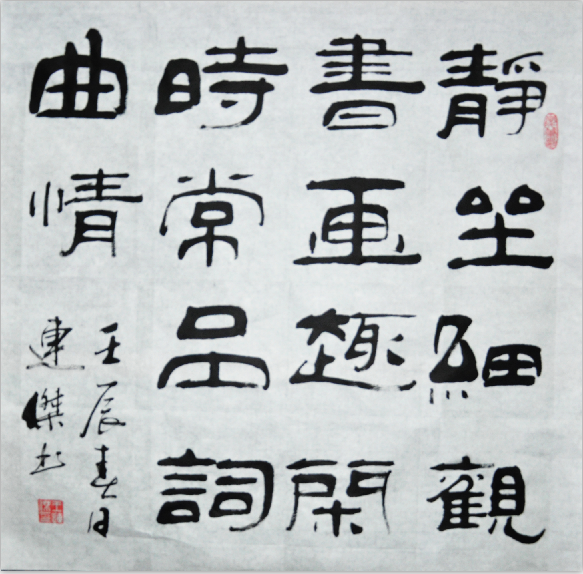 靜坐細觀
書画趣閑
時常品詞
曲情
壬辰春日
連傑书